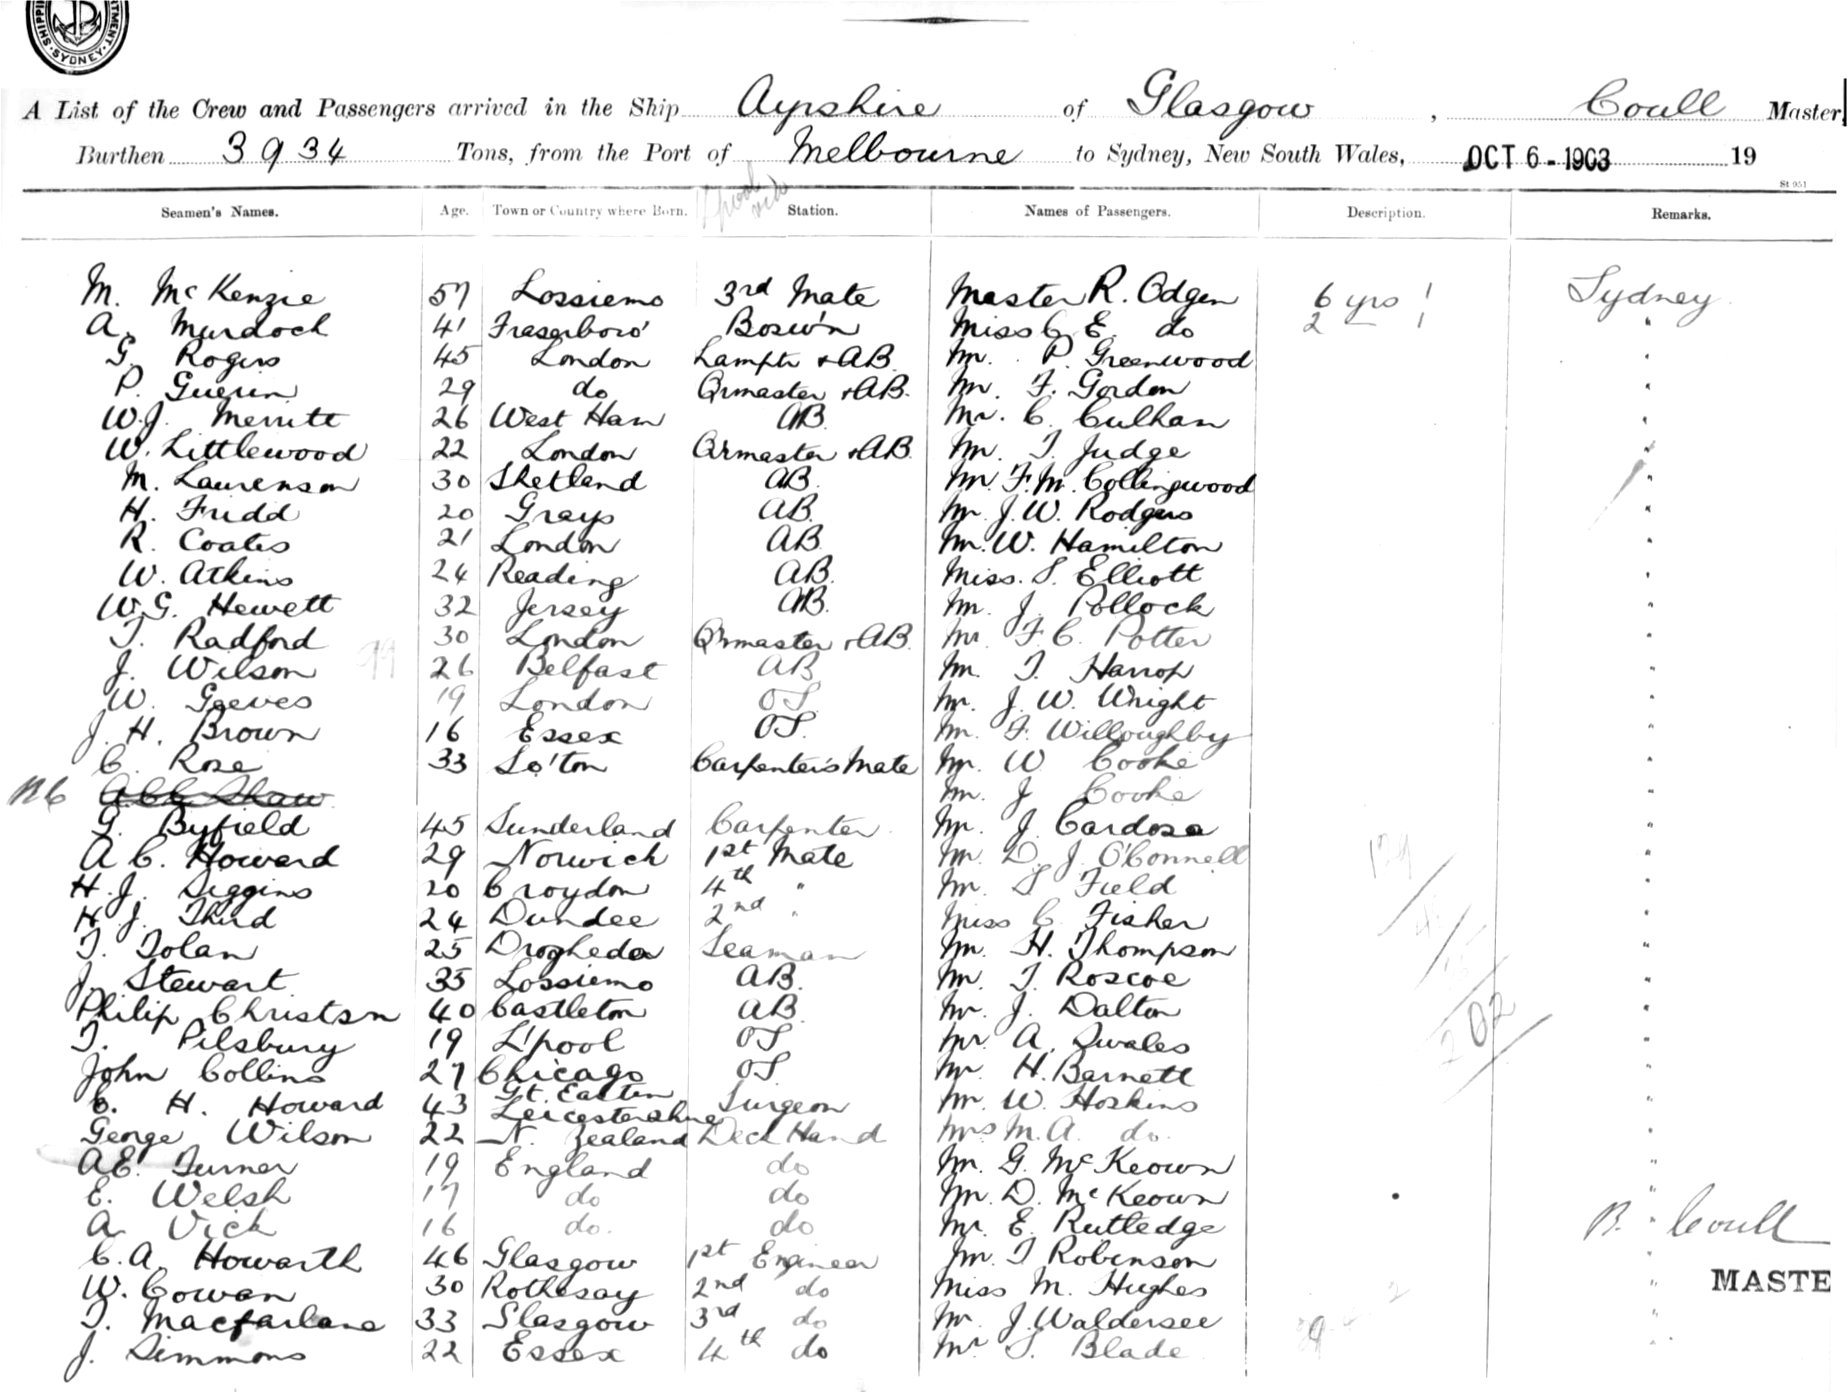 SHIPPING DEPARTMENT. SYDNEY
A List of the Crew and Passengers arrived in the Ship Ayrshire of Glasgow, Coull Master
Burthen 3934 Tons, from the Port of Melbourne to Sydney, New South Wales, OCT 6 - 1903 19
St 951
Seamen's Names. Age. Town or Country where Born. Station. Names of Passengers. Description. Remarks.
M. McKenzie 57 Lossiemo 3rd Mate Master R. Odgen 6 yrs 1 Sydney
A. Murdoch 41 Fraserboro' Bosw'n Miss C. E. do 2 — 1 "
G. Rogers 45 London Lamptr & AB. Mr. P. Greenwood "
P. Guerin 29 do Qrmaster & AB. Mr. F. Gordon "
W.J. Merritt 26 West Ham AB. Mr. C. Culhan "
W. Littlewood 22 London Qrmaster & AB. Mr. T. Judge "
M. Laurenson 30 Shetland AB. Mr. F. M. Collingwood "
H. Fridd 20 Grays AB. Mr. J. W. Rodgers "
R. Coates 21 London AB. Mr. W. Hamilton "
W. Atkins 24 Reading AB. Miss. S. Elliott "
W.G. Hewett 32 Jersey AB. Mr. J. Pollock "
T. Radford 30 London Qrmaster & AB. Mr. F. C. Potter "
J. Wilson 26 Belfast AB Mr. T. Harrop "
W. Greeves 19 London OS. Mr. J. W. Wright "
J. H. Brown 16 Essex OS. Mr. F. Willoughby "
C. Rose 33 So'ton Carpenter's Mate Mr. W. Cooke "
Mr. J Cooke "
G. Byfield 45 Sunderland Carpenter Mr. J. Cardosa "
A C. Howard 29 Norwich 1st Mate Mr. D. J. O'Connell "
H. J. Siggins 20 Croydon 4th " Mr. S Field "
H. J. Third 24 Dundee 2nd " Miss C. Fisher "
T. Tolan 25 Drogheda Seaman Mr. H. Thompson "
J. Stewart 35 Lossiemo AB. Mr. T. Roscoe "
Philip Christian 40 Castleton AB. Mr. J. Dalton "
T. Pilsbury 19 L'pool OS Mr. A. Swales " 202
John Collins 27 Chicago OS. Mr. H. Barnett "
C. H. Howard 43 Gt. Easton Leicestershire Surgeon Mr. W. Hoskins "
George Wilson 22 N. Zealand Deck Hand Mrs M. A. do. "
A E. Turner 19 England do Mr. G. McKeown "
E. Welsh 17 do do Mr. D. McKeown "
A Vick 16 do. do Mr. E. Rutledge " B. Coull
C. A. Howarth 46 Glasgow 1st Engineer Mr. T Robinson "
W. Cowan 30 Rothesay 2nd do Miss M. Hughes " MASTE
T. Macfarlane 33 Glasgow 3rd do Mr. J. Waldersee "
J. Simmons 22 Essex 4th do Mr S. Blade "